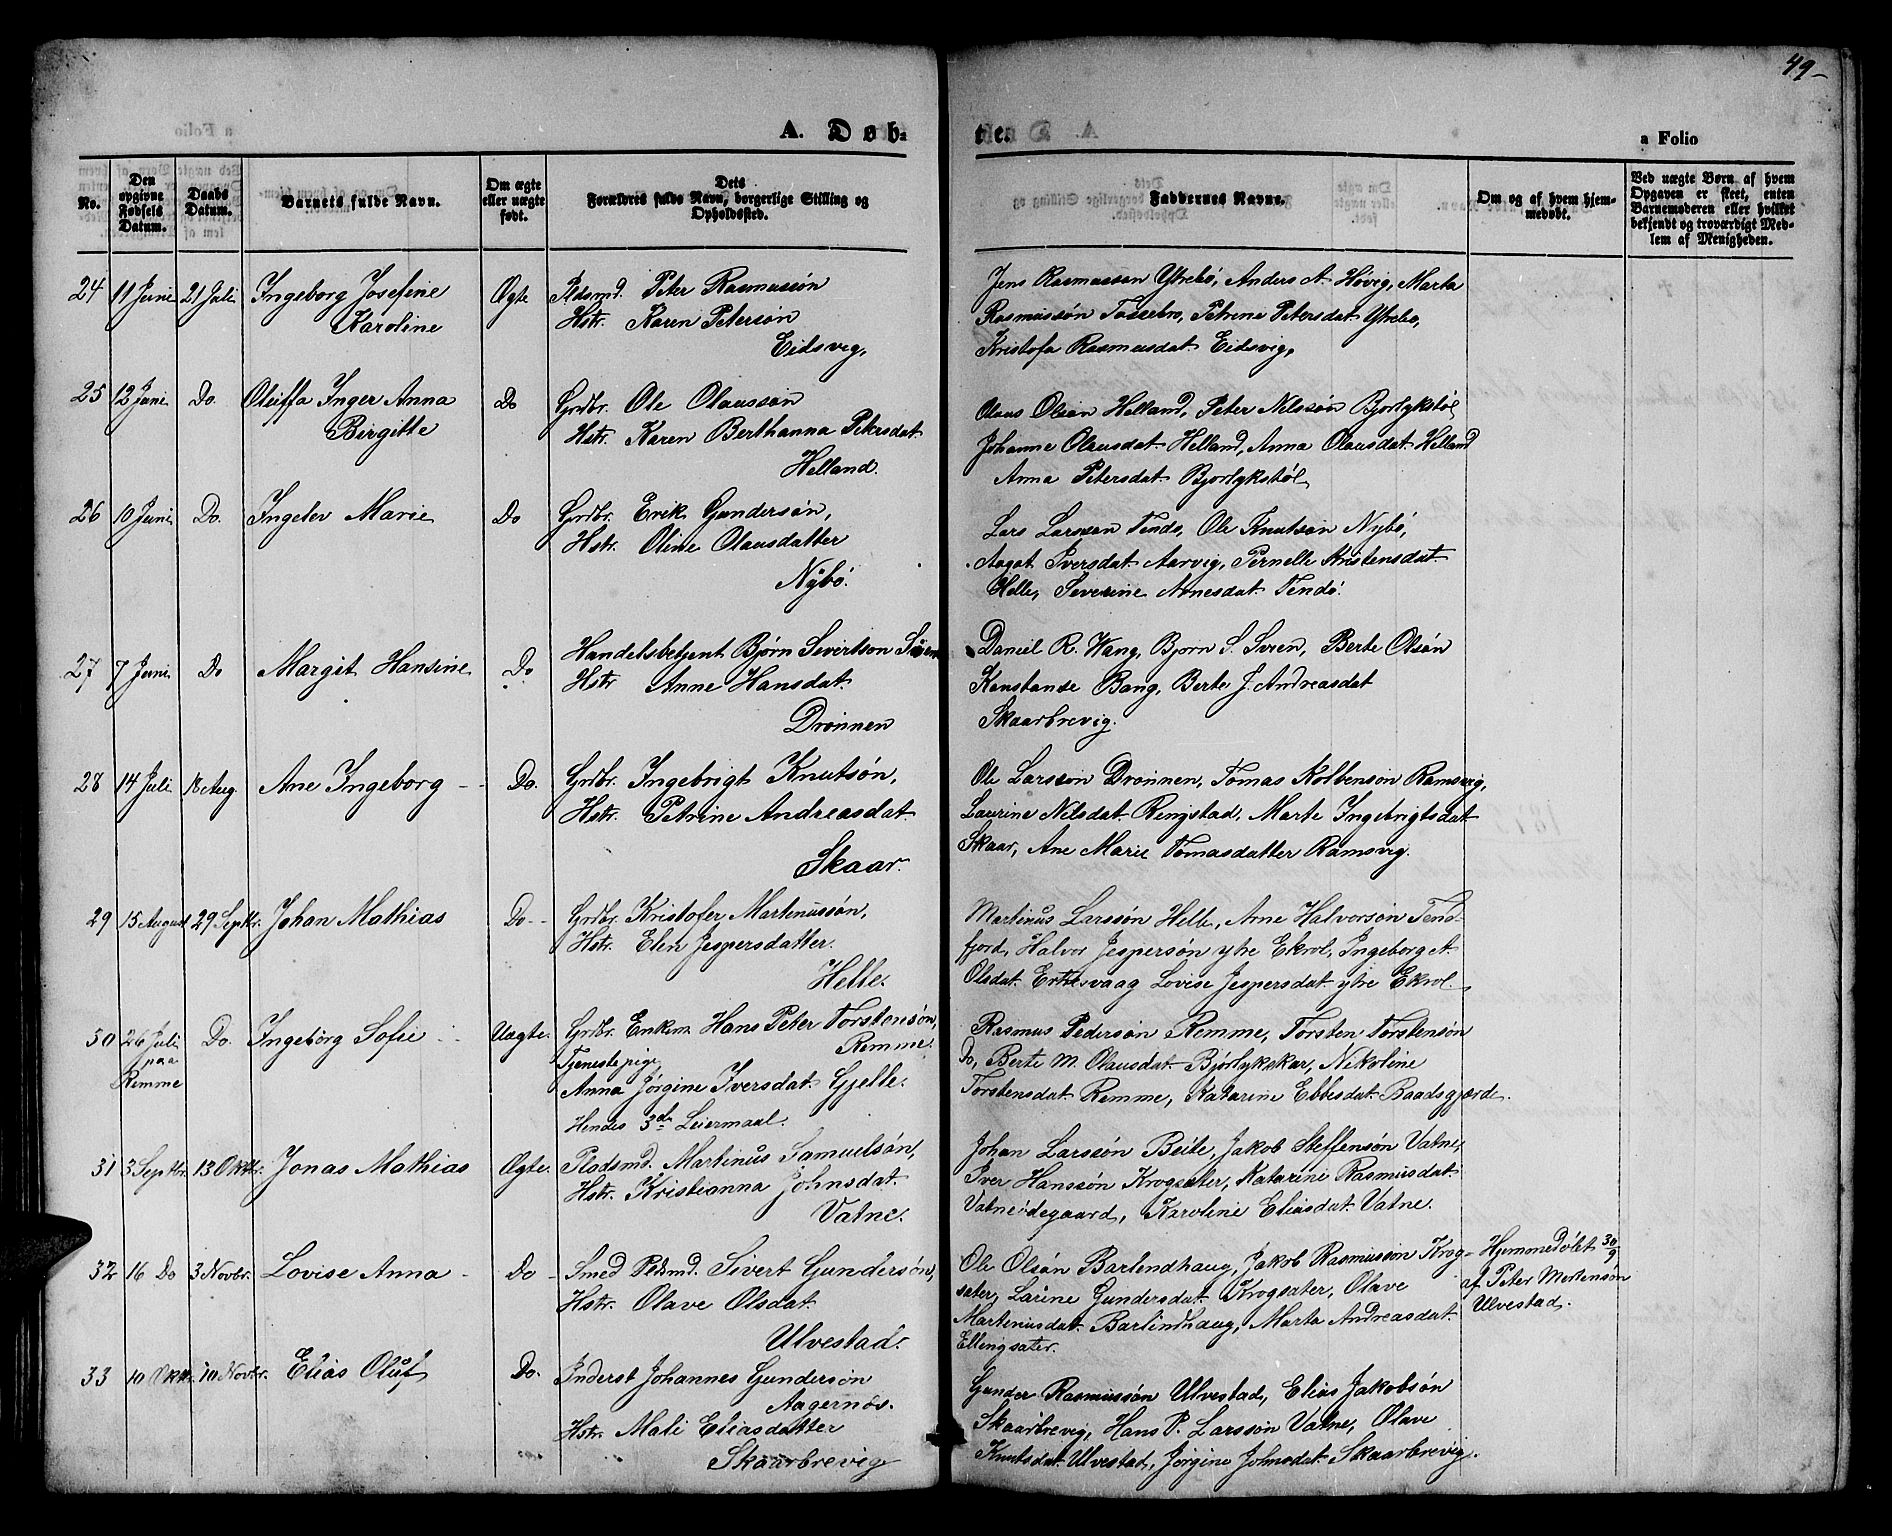 49-
A. Døb-
te.
a Folio
No.
Den opgivne Fødsels Datum.
Daabs Datum.
Barnets fulde Navn.
Om ægte eller uægte født.
Dets Forældres fulde Navn, borgerlige Stilling og Opholdssted.
Faddernes Navne.
Om og af hvem hjemmedøbt.
Ved uægte Børn af hvem Opgaven er skeet, enten Barnemoderen eller hvilket bekjendt og troværdigt Medlem af Menigheden.
24 11 Juni 21 Juli Ingeborg Josefine Ægte Pldsmd. Peter Rasmussøn
Karoline Hstr. Karen Petersøn
Eidsvig,
Jens Rasmussøn Ytrebø, Anders A. Høvig, Marta
Rasmussøn Tossebro, Petrine Petersdat Ytrebø,
Kristofa Rasmusdat. Eidsvig,
25 12 Juni Do. Oleiffa Inger Anna Do Grdbr. Ole Olaussøn
Birgitte Hstr. Karen Berthanna Petersdat
Helland.
Olaus Olsøn Helland, Peter Nilssøn Bjørlykstøl
Johanne Olausdat. Helland, Anna Olausdat Helland
Anna Petersdat Bjorlykstøl,
26 10 Juni Do. Ingelev Marie Do Grdbr. Erik Gundersøn,
Hstr. Oline Olausdatter
Nybø.
Lars Larssøn Tendø, Ole Knutsøn Nybø,
Aagot Iversdat Aarvig, Pernelle Kristensdat
Helle, Severine Arnesdat Tendø.
27 7 Juni Do Margit Hansine Do Handelsbetjent Bjørn Sivertson
Hstr Anne Hansdat.
Drønnen
Daniel R. Wang, Bjørn S. Søren, Berte Olsøn
Konstanse Bang, Berte J. Andreasdat
Skaarbrevig.
28 14 Juli 18 Aug. Ane Ingeborg -- Do. Grdbr. Ingebrigt Knutsøn,
Hstr. Petrine Andreasdat.
Skaar.
Ole Larssøn Drønnen, Tomas Kolbensøn Ramsvig,
Laurine Nilsdat. Ringstad, Marte Ingebrigtsdat
Skaar, Ane Marie Tomasdatter Ramsvig.
29 15 August 29 Septbr. Johan Mathias Do-- Grdbr. Kristofer Martinussøn,
Hstr. Elen Jespersdatter.
Helle.
Martinus Larssøn Helle, Arne Halvorsøn Tend-
fjord, Halvor Jespersøn ytre Ekrol, Ingeborg A
Olsdat. Erknesvaag Lovise Jespersdat ytre Ekrol.
30 26 Juli Do. Ingebørg Sofie Uægte. Grdbr. Enkm. Hans Peter Torstensøn,
paa Remme
Remme.
Tjenestepige
Anna Jørgine Iversdat Gjelle.
Hendes 3de Leiermaal.
Rasmus Pedersøn Remme, Torsten Torstensøn
Do, Berte M. Olausdat Bjørlykskar, Nikoline
Torstensdat. Remme, Katarine Ebbesdat Baadsgjærde.
31 3 Septbr. 13 Oktbr. Jonas Mathias Ægte. Pladsmd. Martinus Samuelsøn,
Hstr. Kristianna Johnsdat.
Vatne.
Johan Larssøn Beite, Jakob Steffensøn Vatne,
Iver Hanssøn Krogsæter, Katarine Rasmusdat.
Vatneødegaard, Karoline Eliasdat. Vatne.
32 16 Do 3 Novbr. Lovise Anna - Do - Smed Pldsmd. Sivert Gundersøn,
Hstr. Olave Olsdat.
Ulvestad.
Ole Olsøn Barlindhaug, Jakob Rasmussøn Krog-
sæter, Larine Gundersdat. Krogsæter, Olave
Martinusdat. Barlindhaug, Marta Andreasdat.
Ellingsæter.
Hjemmedøbt 30/9
af Peter Mortensøn
Ulvestad.
33 10 Oktbr. 10 Novbr. Elias Oluf Do. Inderst Johannes Gundersøn
Aagernæs.
Hstr. Mali Eliasdatter
Skaarbrevig
Gunder Rasmussøn Ulvestad, Elias Jakobsøn
Skaarbrevig, Hans P. Larssøn Vatne, Olave
Knutsdat. Ulvestad, Jørgine Johnsdat. Skaarbrevig.